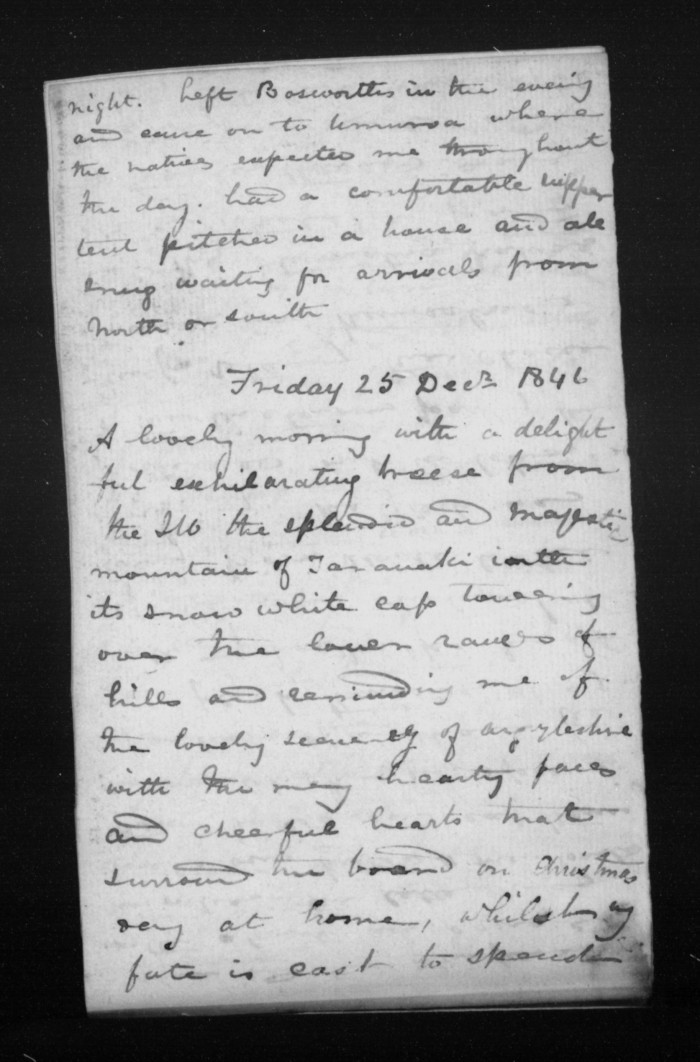 night. Left Bosworths in the evening
and came on to Umuroa where
the natives expected me throughout
the day. had a comfortable supper
tent pitched in a house and all
snug waiting for arrivals from
north or south
Friday 25 Decr 1846
A lovely morning with a delight
ful exhilarating breese from
the SW the splendid and majestic
mountain of Taranaki with
its snow white cap towering
over the lower ranges of
hills and reminding me of
the lovely scenery of argyleshire
with the many hearty faces
and cheerful hearts that
surround the board on Christmas
day at home, whilst my
fate is cast to spend